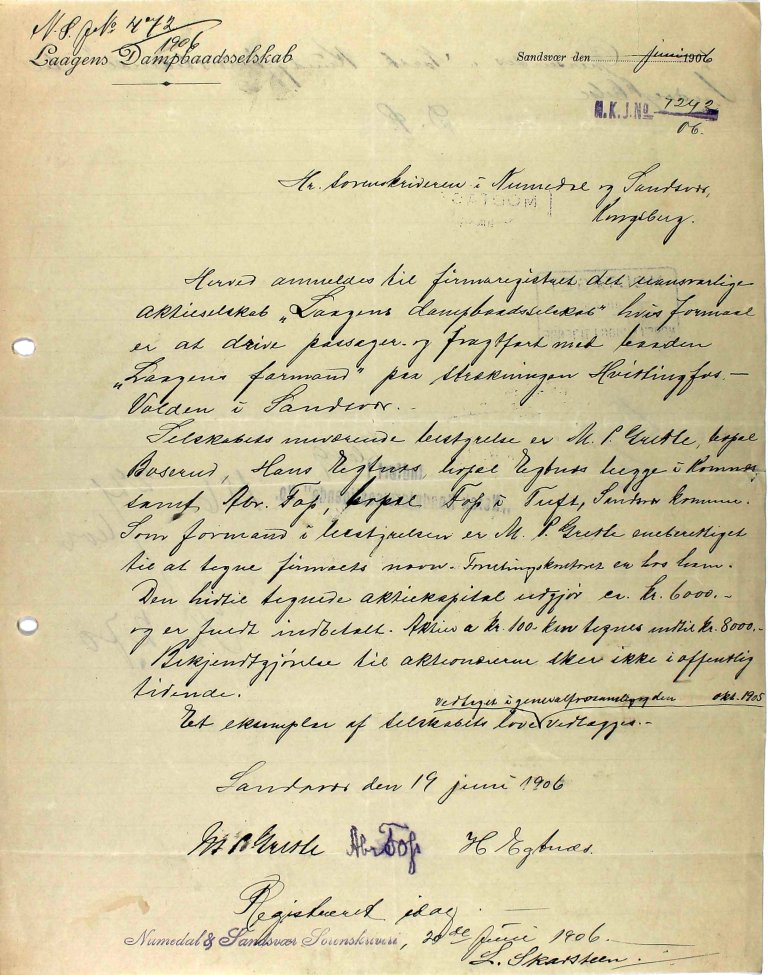 N.S. J№ 472
1906
Laagens Dampbaadsselskab
Sandsvær den juni 1906
N.K.J.No 7292
06.
Hr. Sorenskriveren i Numedal og Sandsvær,
Kongsberg.
Herved anmeldes til firmaregistret det uansvarlige
aktieselskab „Laagens dampbaadsselskab" hvis formaal
er at drive passager- og fragtfart med baaden
„Laagens formand" paa strækningen Hvittingfos.–
Volden i Sandsvær.
Selskabets nuværende bestyrelse er M. P. Gretle, bopæl
Boserud, Hans Egtnæs bopæl Egtnæs begge i Komnæs
samt Abr. Fop, bopæl Fop i Tuft, Sandsvær kommune.
Som formand i bestyrelsen er M. P. Gretle eneberettiget
til at tegne firmaets navn. Forretningskontoret er hos ham.
Den hidtil tegnede aktiekapital udgjør ca. kr. 6000.-
og er fuldt indbetalt. Aktier a kr. 100- kan tegnes indtil kr. 8000.-
Bekjendtgjørelse til aktionærerne sker ikke i offentlig
tidende.
vedtaget i generalforsamling den okt. 1905
Et eksemplar af selskabets love vedlægges.-
Sandsvær den 19 juni 1906
M P Gretle Abr Fop H Egtnæs.
Registreret idag.
Numedal & Sandsvær Sorenskriveri, 20de Juni 1906.
L. Skarsteen